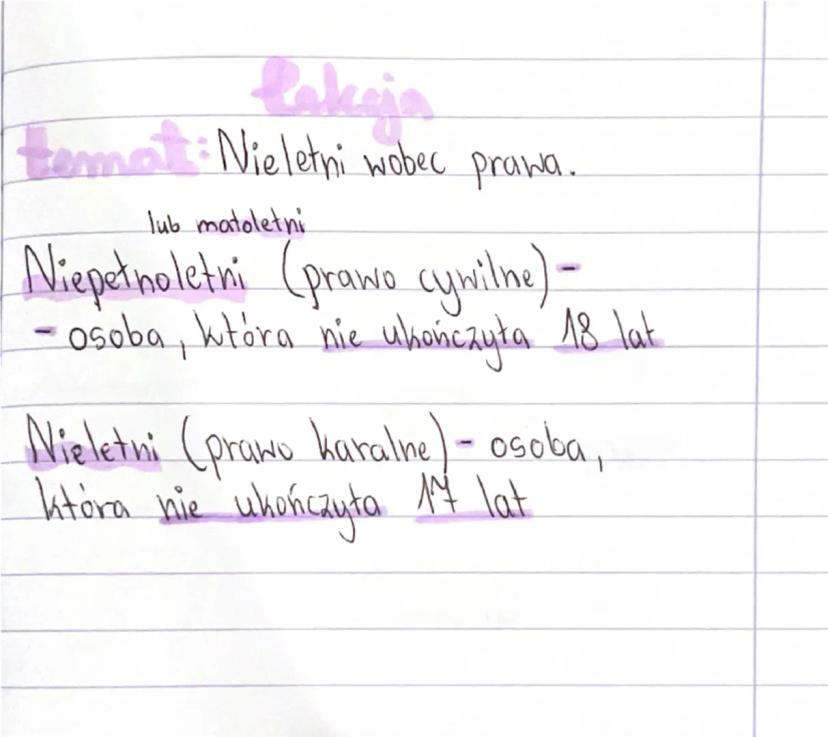 Lekcja
temat: Nieletni wobec prawa.
lub małoletni
Niepełnoletni (prawo cywilne) -
- osoba, która nie ukończyła 18 lat
Nieletni (prawo karalne) - osoba,
która nie ukończyła 17 lat